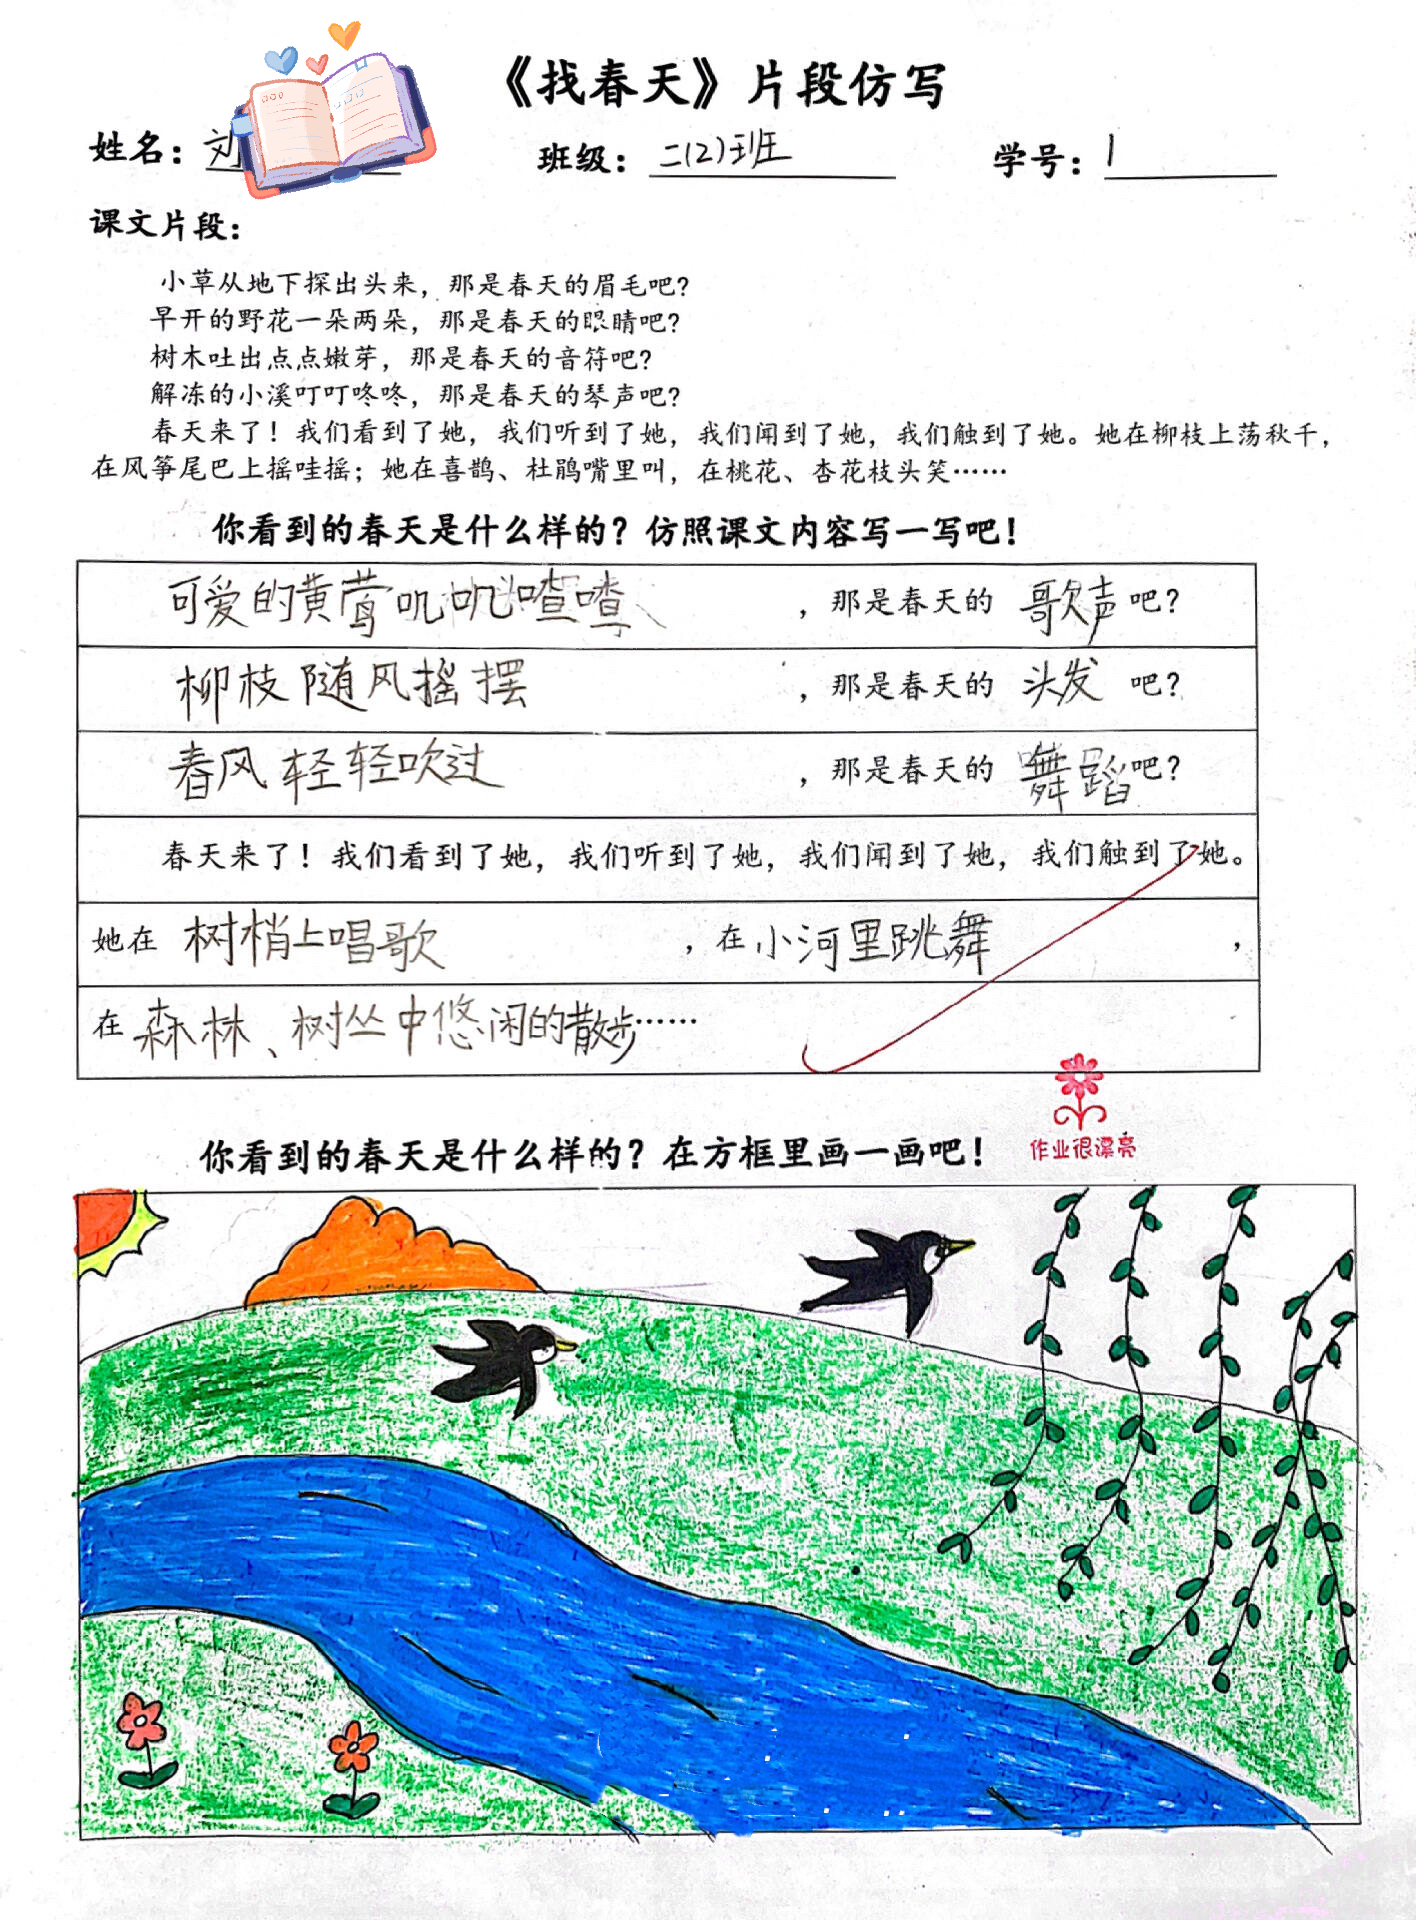 《找春天》片段仿写
姓名：刘 班级：二(2)班 学号：1
课文片段：
小草从地下探出头来，那是春天的眉毛吧？
早开的野花一朵两朵，那是春天的眼睛吧？
树木吐出点点嫩芽，那是春天的音符吧？
解冻的小溪叮叮咚咚，那是春天的琴声吧？
春天来了！我们看到了她，我们听到了她，我们闻到了她，我们触到了她。她在柳枝上荡秋千，
在风筝尾巴上摇哇摇；她在喜鹊、杜鹃嘴里叫，在桃花、杏花枝头笑……
你看到的春天是什么样的？仿照课文内容写一写吧！
可爱的黄莺叽叽喳喳，那是春天的 歌声 吧？
柳枝随风摇摆，那是春天的 头发 吧？
春风轻轻吹过，那是春天的 舞蹈 吧？
春天来了！我们看到了她，我们听到了她，我们闻到了她，我们触到了她。
她在 树梢上唱歌，在 小河里跳舞，
在 森林、树丛中悠闲的散步……
作业很漂亮
你看到的春天是什么样的？在方框里画一画吧！